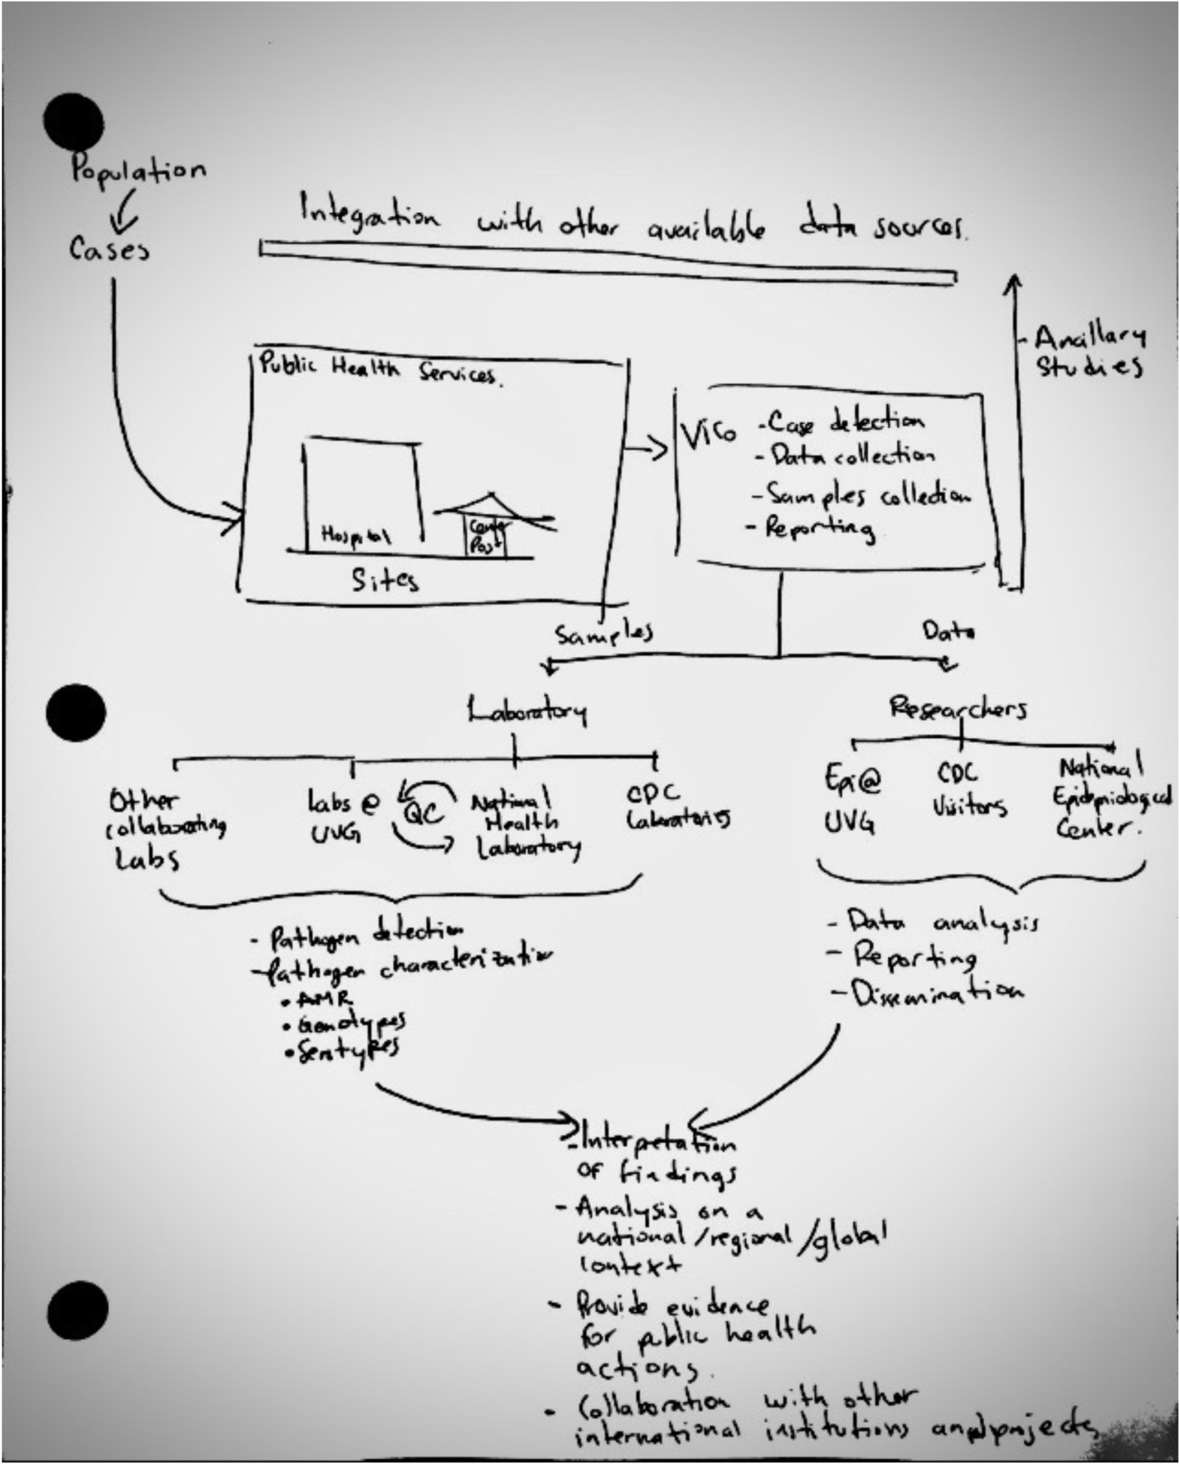 Population
Cases
Integration with other available data sources.
Ancillary
Studies
Public Health Services.
Hospital
Center
Post
Sites
ViCo - Case detection
- Data collection
- Samples collection
- Reporting
Samples
Data
Laboratory
Researchers
Other
collaborating
Labs
Labs @
UVG
QC
National
Health
Laboratory
CDC
Laboratories
Epi @
UVG
CDC
Visitors
National
Epidemiological
Center.
- Pathogen detection
- Pathogen characterization
• AMR
• Genotypes
• Serotypes
- Data analysis
- Reporting
- Dissemination
- Interpretation
of findings
- Analysis on a
national/regional/global
context
- Provide evidence
for public health
actions.
- Collaboration with other
international institutions and projects